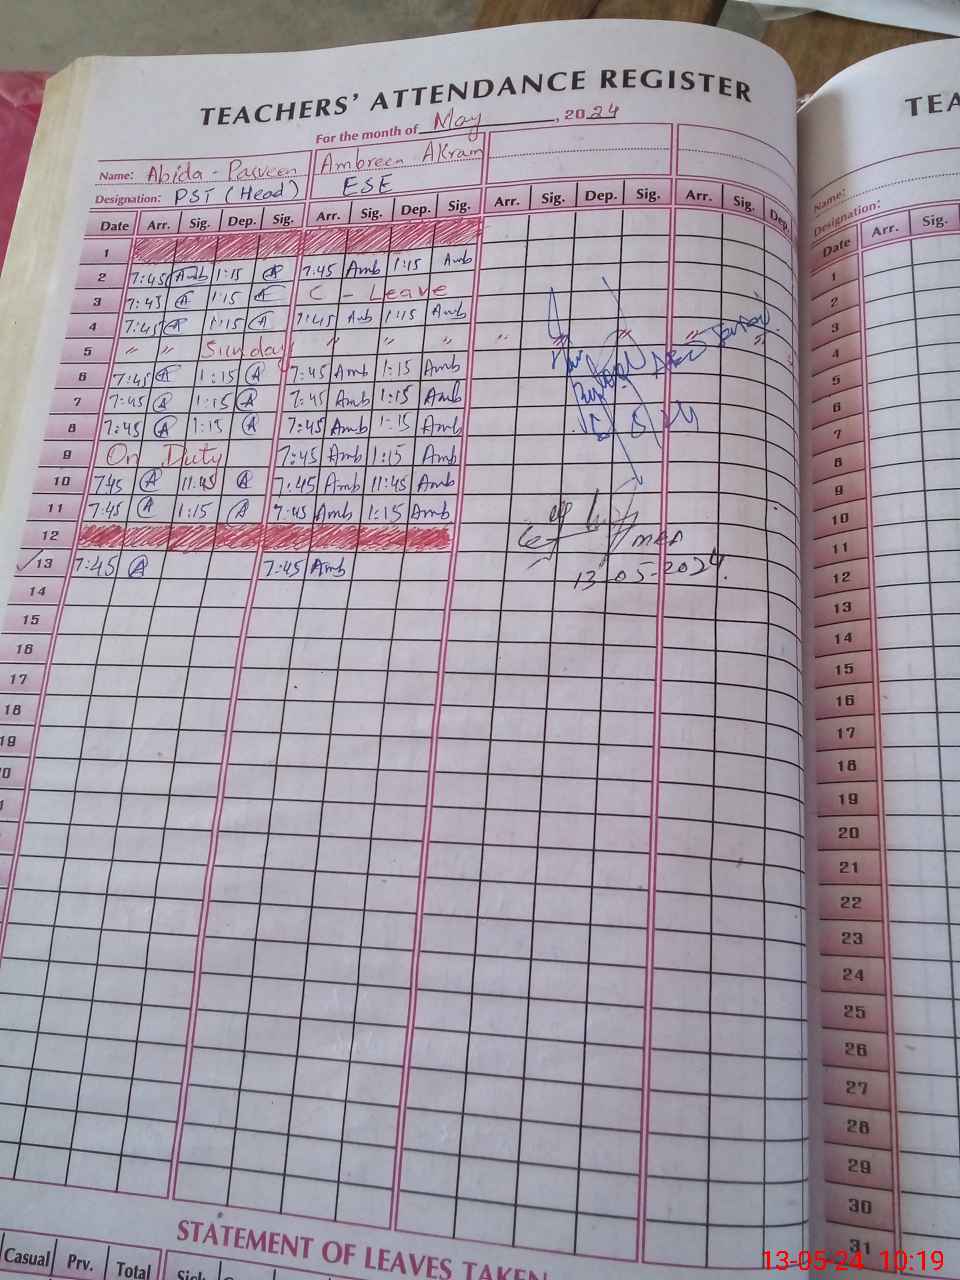 TEACHERS' ATTENDANCE REGISTER
For the month of May, 2024
Name: Abida - Parveen Ambreen Akram
Designation: PST (Head) ESE
Date Arr. Sig. Dep. Sig. Arr. Sig. Dep. Sig. Arr. Sig. Dep. Sig. Arr. Sig. Dep.
1
2 7:45 1:15 A 7:45 Amb 1:15 Amb
3 7:45 A 1:15 A C - Leave
4 7:45 A 1:15 A 7:45 Amb 1:15 Amb
5 " " Sunday " " " " " " " "
6 7:45 A 1:15 A 7:45 Amb 1:15 Amb
7 7:45 A 1:15 A 7:45 Amb 1:15 Amb
8 7:45 A 1:15 A 7:45 Amb 1:15 Amb
9 On Duty 7:45 Amb 1:15 Amb
10 7:45 A 11:45 A 7:45 Amb 11:45 Amb
11 7:45 A 1:15 A 7:45 Amb 1:15 Amb
12
13 7:45 A 7:45 Amb
MEA
13-05-2024.
14
15
16
17
18
19
STATEMENT OF LEAVES TAKEN
Casual Prv. Total Sick
TEA
Name:
Designation:
Date Arr. Sig.
1
2
3
4
5
6
7
8
9
10
11
12
13
14
15
16
17
18
19
20
21
22
23
24
25
26
27
28
29
30
31
13-05-24 10:19